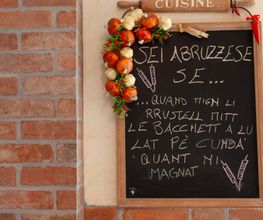 CUISINE
SEI ABRUZZESE
SE...
...QUANDO MIGN LI
RRUSTELL MITT
LE BACCHETT A LU
LAT PÈ CUNDÀ
QUANT NI
MAGNAT